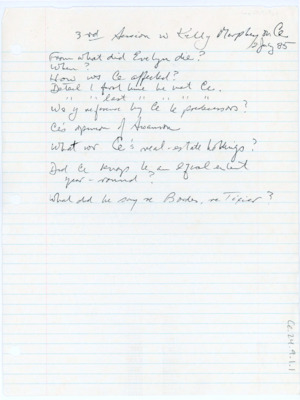 3rd Session w Kelly Murphy, on Ce
2 July 85
From what did Evelyn die?
When?
How was Ce affected?
Detail 1 first time he met Ce.
" " last " " " "
Was y reference by Ce to predecessors?
Ce's opinion of
What wer Ce's real-estate holdings?
Did Ce keep to an equal extent
year-round?
What did he say re Bordes, re Tixier?
Ce 24.9.1.1